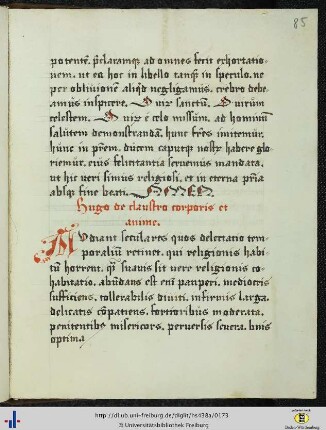 85
potentē. p̄claramq; ad omnes fecit exhortatio-
nem. ut ea hoc in libello tanq̄ in speculo. ne
per obliuionē aliqd negligamus. crebro debe-
amus inspicere. O uir sanctū. O uirum
celestem. O uir e celo missum. ad hominū
salutem demonstrandā. hunc frēs imitemur.
hūnc in prēm. ducem caputq; nostr̄ habere glo-
riemur. eius felicitantia seruemus mandata.
ut hic ueri simus religiosi. et in eterna pr̄ia
absq; fine beati.
Hugo de claustro corporis et
anime.
Audiant seculares quos delectatio tem-
poraliū retinet. qui religionis habi-
tū horrent. q̄ suauis sit uere religionis co-
habitatio. abūdans est eni pauperi. mediocris
sufficiens. tollerabilis diuiti. infirmis larga.
delicatis cōpatiens. fortioribus moderata.
penitentibus misericors. peruersis seuera. bnis
optima
http://dl.ub.uni-freiburg.de/diglit/hs438a/0173
© Universitätsbibliothek Freiburg